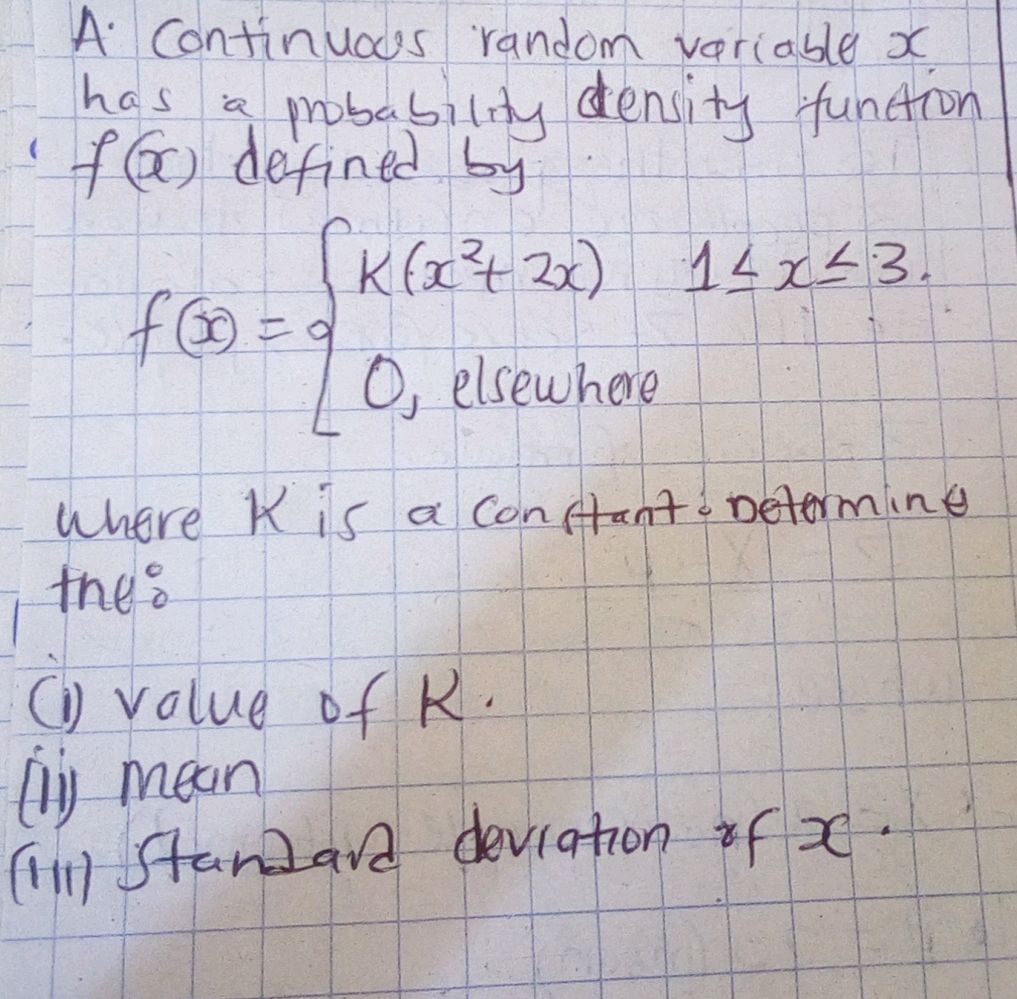 A continuous random variable x
has a probability density function
f(x) defined by
f(x) = { K(x²+ 2x) 1 ≤ x ≤ 3.
0, elsewhere
where K is a constant. Determine
the:
(i) value of K.
(ii) mean
(iii) Standard deviation of x.